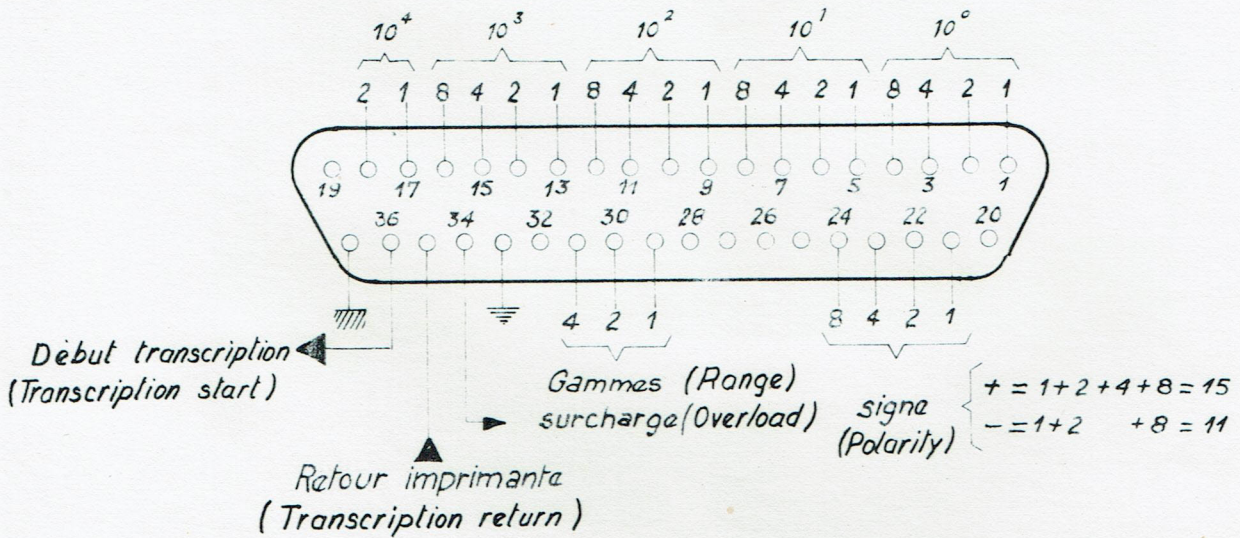 10⁴ 10³ 10² 10¹ 10⁰
2 1 8 4 2 1 8 4 2 1 8 4 2 1 8 4 2 1
19 17 15 13 11 9 7 5 3 1
36 34 32 30 28 26 24 22 20
4 2 1 8 4 2 1
Début transcription
(Transcription start)
Gammes (Range)
surcharge (Overload)
signe
(Polarity)
+ = 1+2+4+8 = 15
- = 1+2 +8 = 11
Retour imprimante
(Transcription return)